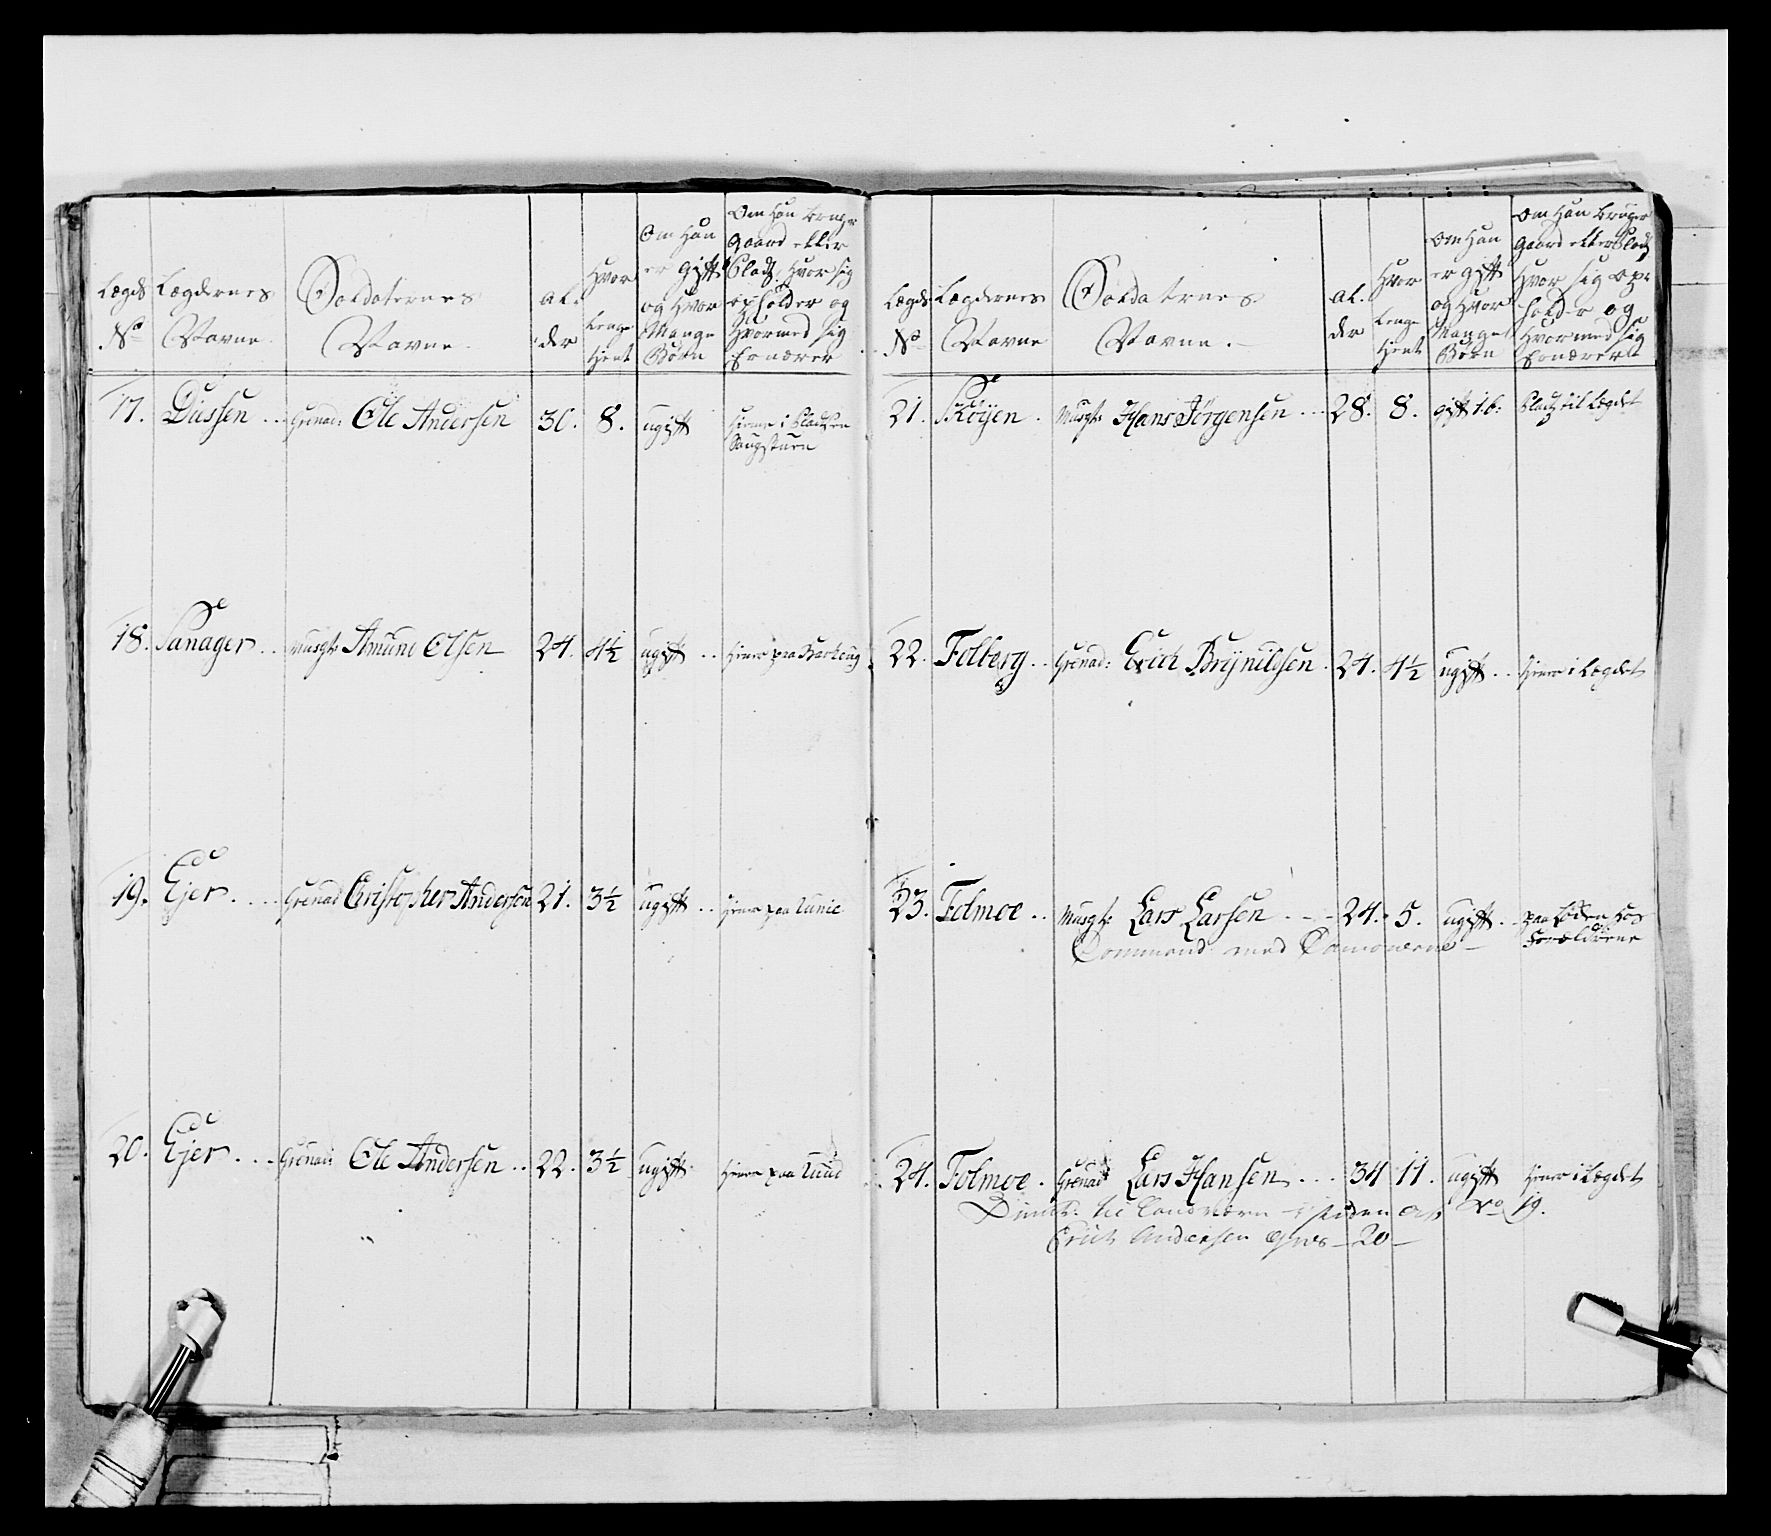 Lægds No
Lægdernes Navne
Soldaternes Navne
Al- der
Hvor lenge tient
Om Han er gift og Hvor Mange Børn
Om Han bruger Gaard eller Plads, Hvor sig opholder og Hvormed sig Ernærer
17. Dussen .. Grenad: Ole Andersen 30. 8. ugift tiene i Pladsen
18. Sanager .. Musqt: Amund Olsen 24. 4½ ugift .. tiener paa
19. Ejer .... Grenad Christopher Andersen 21. 3½ ugift .. tiener paa Lunie
20. Ejer ... Grenad: Ole Andersen .. 22. 3½ ugift tiener paa Lund
Lægds No
Lægdernes Navne
Soldaternes Navne
Al- der
Hvor lenge tient
Om Han er gift og Hvor Mange Børn
Om Han bruger Gaard eller Plads Hvor sig opholder og Hvormed sig Ernærer
21. Skøyen . Musqt: Hans Jørgensen ... 28. 8. gift 1.b: Plads til Lægdet
22. Folberg .. Grenad: Erich Brynildsen . 24. 4½ ugift .. tiener i Lægdet
23. Folmoe .. Musqt: Lars Larsen ... 24. 5. ugift .. paa Løden hos
Forældrene
Command: med
24. Folmoe . Grenad Lars Hansen ... 34 11. ugift tiener i Lægdet
til Landværn i steden No 19.
Erich Andersen 20